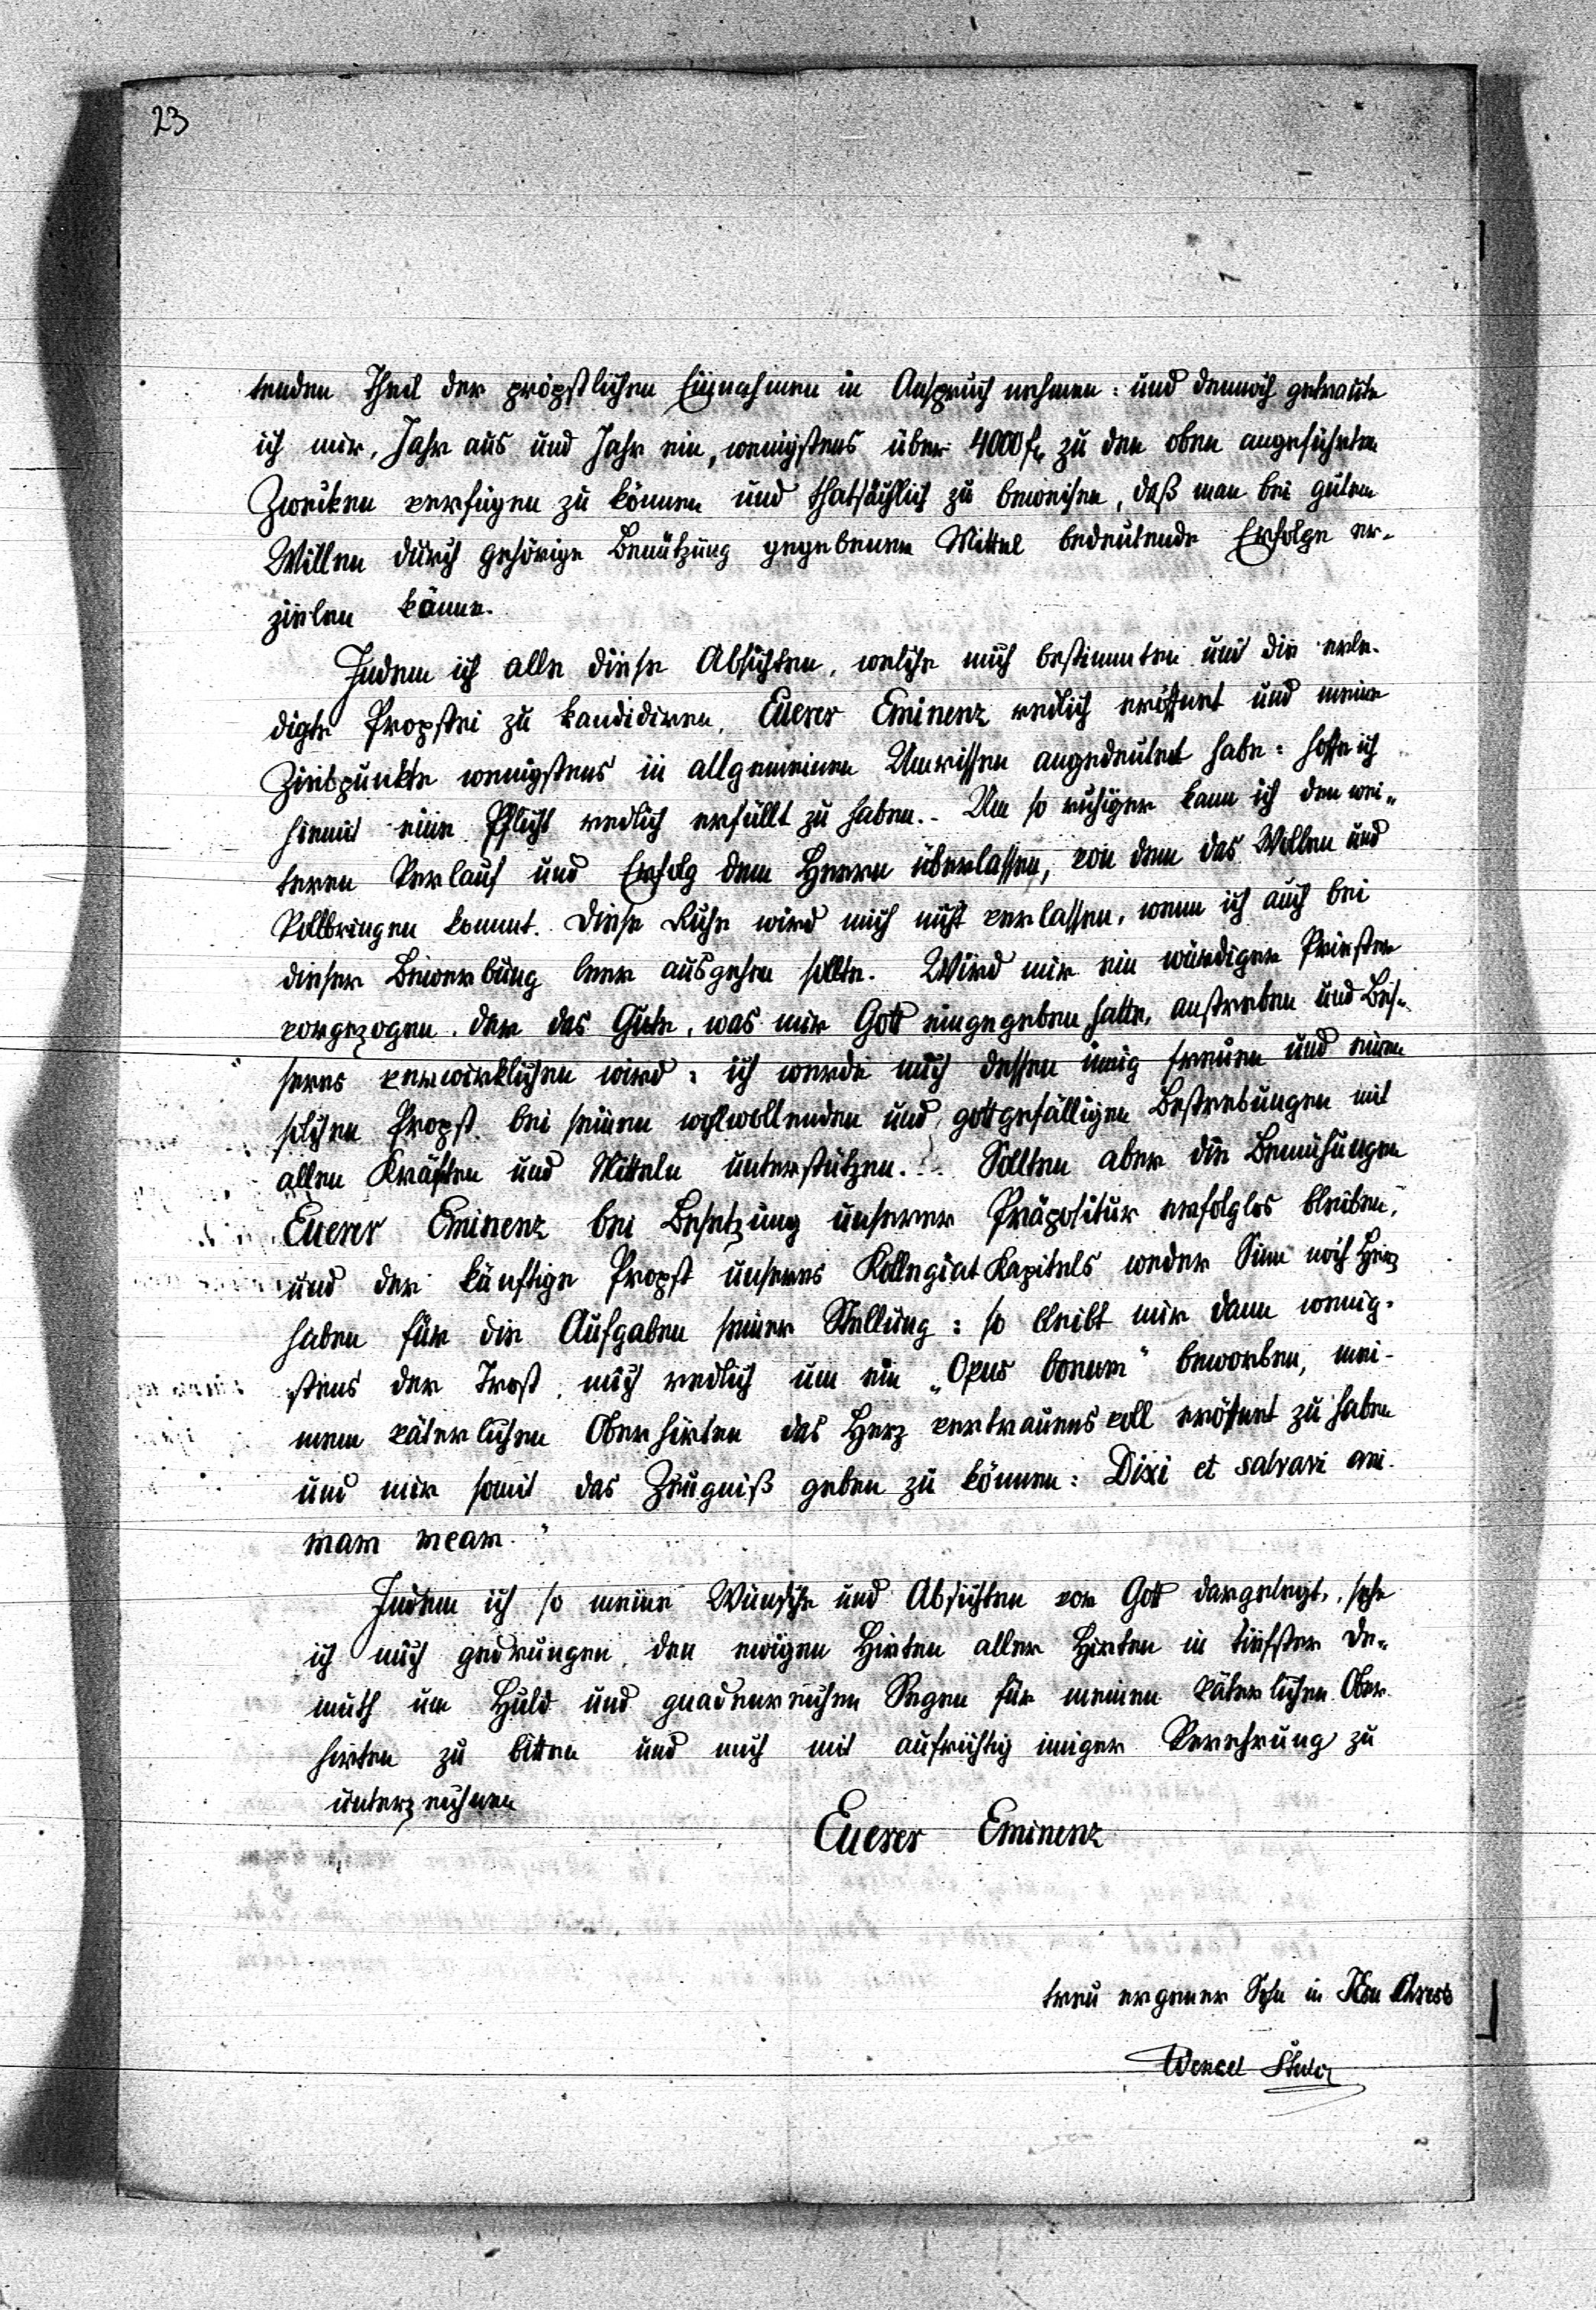 23
tenden Theil der pröpstlichen Einnahmen in Anspruch nehmen: und dennoch getraute
ich mir, Jahr aus und Jahr ein, wenigstens über 4000 fl. zu den oben angeführten
Zwecken verfügen zu können und thatsächlich zu beweisen, daß man bei gutem
Willen durch gehörige Benützung gegebener Mittel bedeutende Erfolge er-
zielen könne.
Indem ich alle diese Absichten, welche mich bestimmten um die erle-
digte Propstei zu kandidiren, Euerer Eminenz redlich eröffnet und meine
Zielpunkte wenigstens in allgemeinen Umrissen angedeutet habe: hoffe ich
hiemit eine Pflicht redlich erfüllt zu haben. Um so ruhiger kann ich den wei-
teren Verlauf und Erfolg dem Herrn überlassen, von dem das Wollen und
Vollbringen kommt. Diese Ruhe wird mich nicht verlassen, wenn ich auch bei
dieser Bewerbung leer ausgehen sollte. Wird mir ein würdiger Priester
vorgezogen, der das Gute, was mir Gott eingegeben hatte, anstreben und Bes-
seres verwirklichen wird: ich werde mich dessen innig freuen und einen
solchen Propst bei seinen wohlwollenden und gottgefälligen Bestrebungen mit
allen Kräften und Mitteln unterstützen. Sollten aber die Bemühungen
Euerer Eminenz bei Besetzung unserer Präpositur erfolglos bleiben,
und der künftige Propst unseres Kollegiat Kapitels weder Sinn noch Herz
haben für die Aufgaben seiner Stellung: so bleibt mir dann wenig-
stens der Trost, mich redlich um ein „Opus bonum" beworben, mei-
nem väterlichen Oberhirten das Herz vertrauensvoll eröfnet zu haben
und mir somit das Zeugniß geben zu können: Dixi et salvavi ani-
mam meam."
Indem ich so meine Wünsche und Absichten vor Gott dargelegt, sehe
ich mich gedrungen, den ewigen Hirten aller Hirten in tiefster De-
muth um Huld und gnadenreichen Segen für meinen väterlichen Ober-
hirten zu bitten und mich mit aufrichtig inniger Verehrung zu
unterzeichnen
Euerer Eminenz
treu ergener Sohn in
Wenzel Štulc